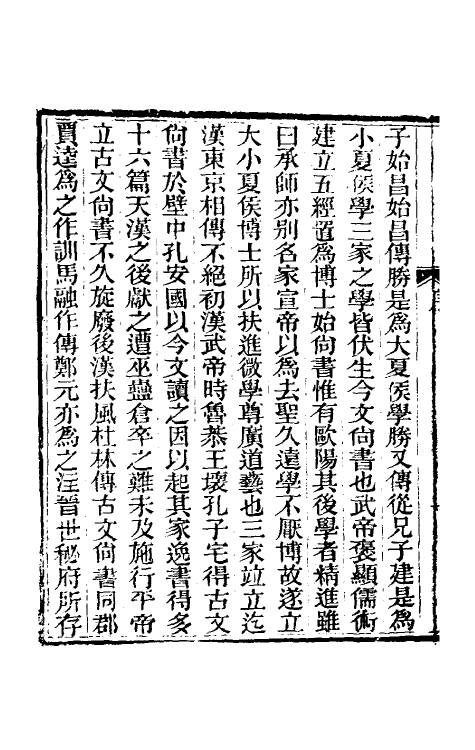 子始昌始昌傳勝是爲大夏侯學勝又傳從兄子建是爲
小夏侯學三家之學皆伏生今文尙書也武帝褒顯儒術
建立五經置爲博士始尙書惟有歐陽其後學者精進雖
曰承師亦别名家宣帝以爲去聖久遠學不厭博故遂立
大小夏侯博士所以扶進微學尊廣道藝也三家竝立迄
漢東京相傳不絕初漢武帝時魯恭王壞孔子宅得古文
尙書於壁中孔安國以今文讀之因以起其家逸書得多
十六篇天漢之後獻之遭巫蠱倉卒之難未及施行平帝
立古文尙書不久旋廢後漢扶風杜林傳古文尙書同郡
賈逵爲之作訓馬融作傳鄭元亦爲之注晉世秘府所存